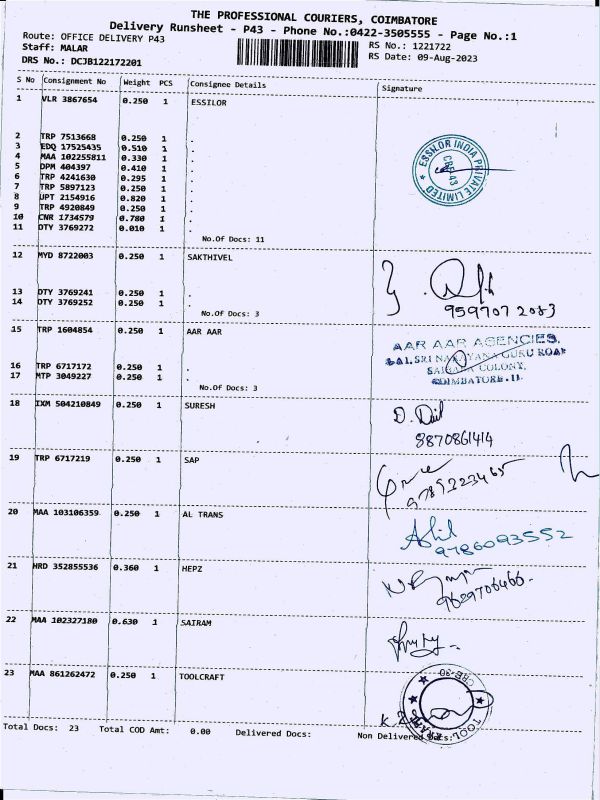 THE PROFESSIONAL COURIERS, COIMBATORE
Delivery Runsheet - P43 - Phone No.:0422-3505555 - Page No.:1
Route: OFFICE DELIVERY P43
RS No.: 1221722
Staff: MALAR
RS Date: 09-Aug-2023
DRS No.: DCJB122172201
S No Consignment No Weight PCS Consignee Details Signature
1 VLR 3867654 0.250 1 ESSILOR
2 TRP 7513668 0.250 1 .
3 EDQ 17525435 0.510 1 .
4 MAA 102255811 0.330 1 .
5 DPM 404397 0.410 1 .
6 TRP 4241630 0.295 1 .
7 TRP 5897123 0.250 1 .
8 UPT 2154916 0.820 1 .
9 TRP 4920849 0.250 1 .
10 CNR 1734579 0.780 1 .
11 DTY 3769272 0.010 1 .
ESSILOR INDIA PRIVATE LIMITED
CBE-43
No.Of Docs: 11
12 MYD 8722003 0.250 1 SAKTHIVEL
13 DTY 3769241 0.250 1 .
14 DTY 3769252 0.250 1 .
No.Of Docs: 3
959707 2083
15 TRP 1604854 0.250 1 AAR AAR
AAR AAR AGENCIES,
SRI NARAYANA GURU ROAD
SAIBABA COLONY,
COIMBATORE-11.
16 TRP 6717172 0.250 1 .
17 MTP 3049227 0.250 1 .
No.Of Docs: 3
18 IXM 504210849 0.250 1 SURESH
8870861414
19 TRP 6717219 0.250 1 SAP
9789223465
20 MAA 103106359 0.250 1 AL TRANS
9786093552
21 HRD 352855536 0.360 1 HEPZ
9629706466.
22 MAA 102327180 0.630 1 SAIRAM
23 MAA 861262472 0.250 1 TOOLCRAFT
CBE-30
TOOL
Total Docs: 23 Total COD Amt: 0.00 Delivered Docs: Non Delivered Docs: